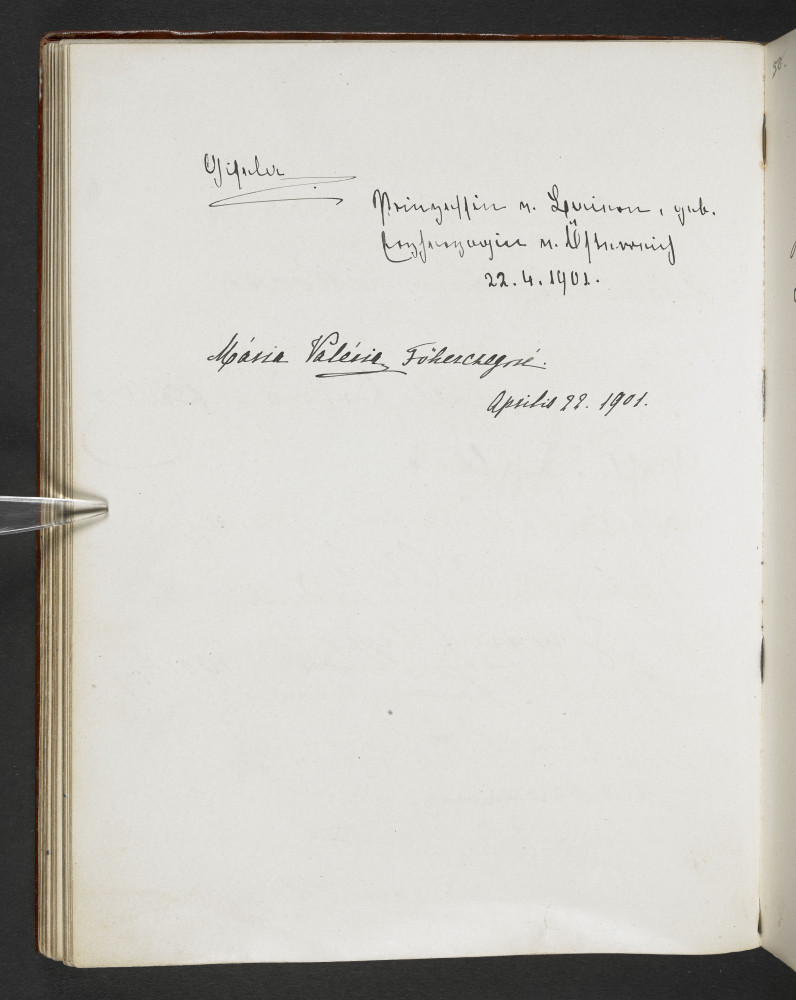 Gisela
Prinzessin v. Bayern, geb.
Erzherzogin v. Österreich
22. 4. 1901.
Mária Valéria Főherczegnő.
Április 22. 1901.
50.